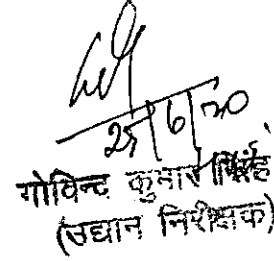 25/6/20
गोविन्द कुमार सिंह
(उद्यान निरीक्षक)